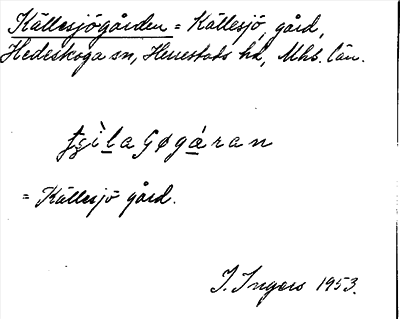 Källesjögården = Källesjö, gård,
Hedeskoga sn, Herrestads hd, Mhs. län.
ʈʂìlaʃøgáran
= Källesjö gård.
I. Ingers 1953.